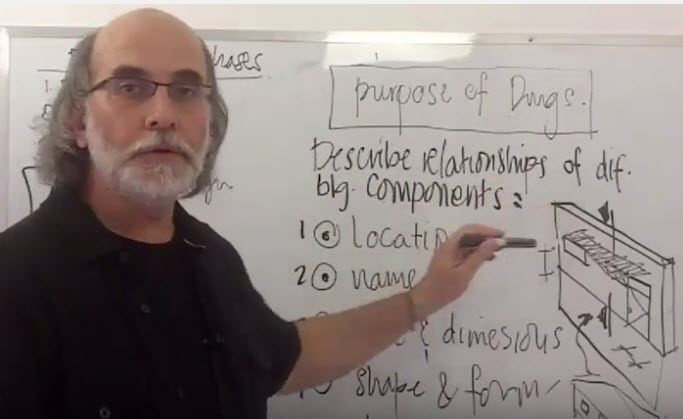 hases
1.
purpose of Dwgs.
Describe relationships of dif.
blg. Components:
1 locatio
2 name
& dimesions
shape & form